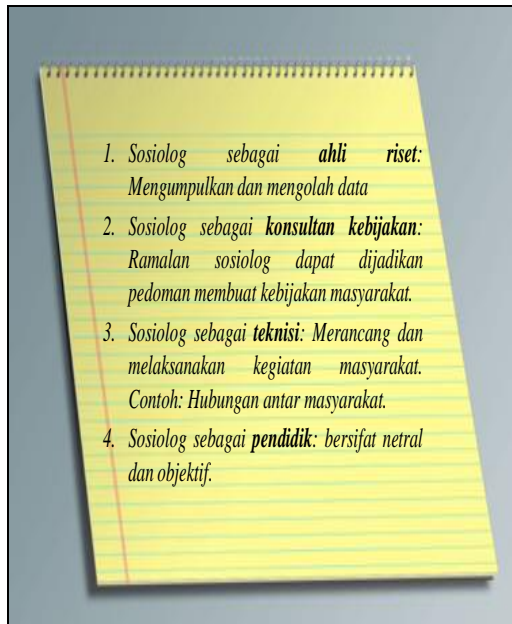 1. Sosiolog sebagai ahli riset:
Mengumpulkan dan mengolah data
2. Sosiolog sebagai konsultan kebijakan:
Ramalan sosiolog dapat dijadikan
pedoman membuat kebijakan masyarakat.
3. Sosiolog sebagai teknisi: Merancang dan
melaksanakan kegiatan masyarakat.
Contoh: Hubungan antar masyarakat.
4. Sosiolog sebagai pendidik: bersifat netral
dan objektif.